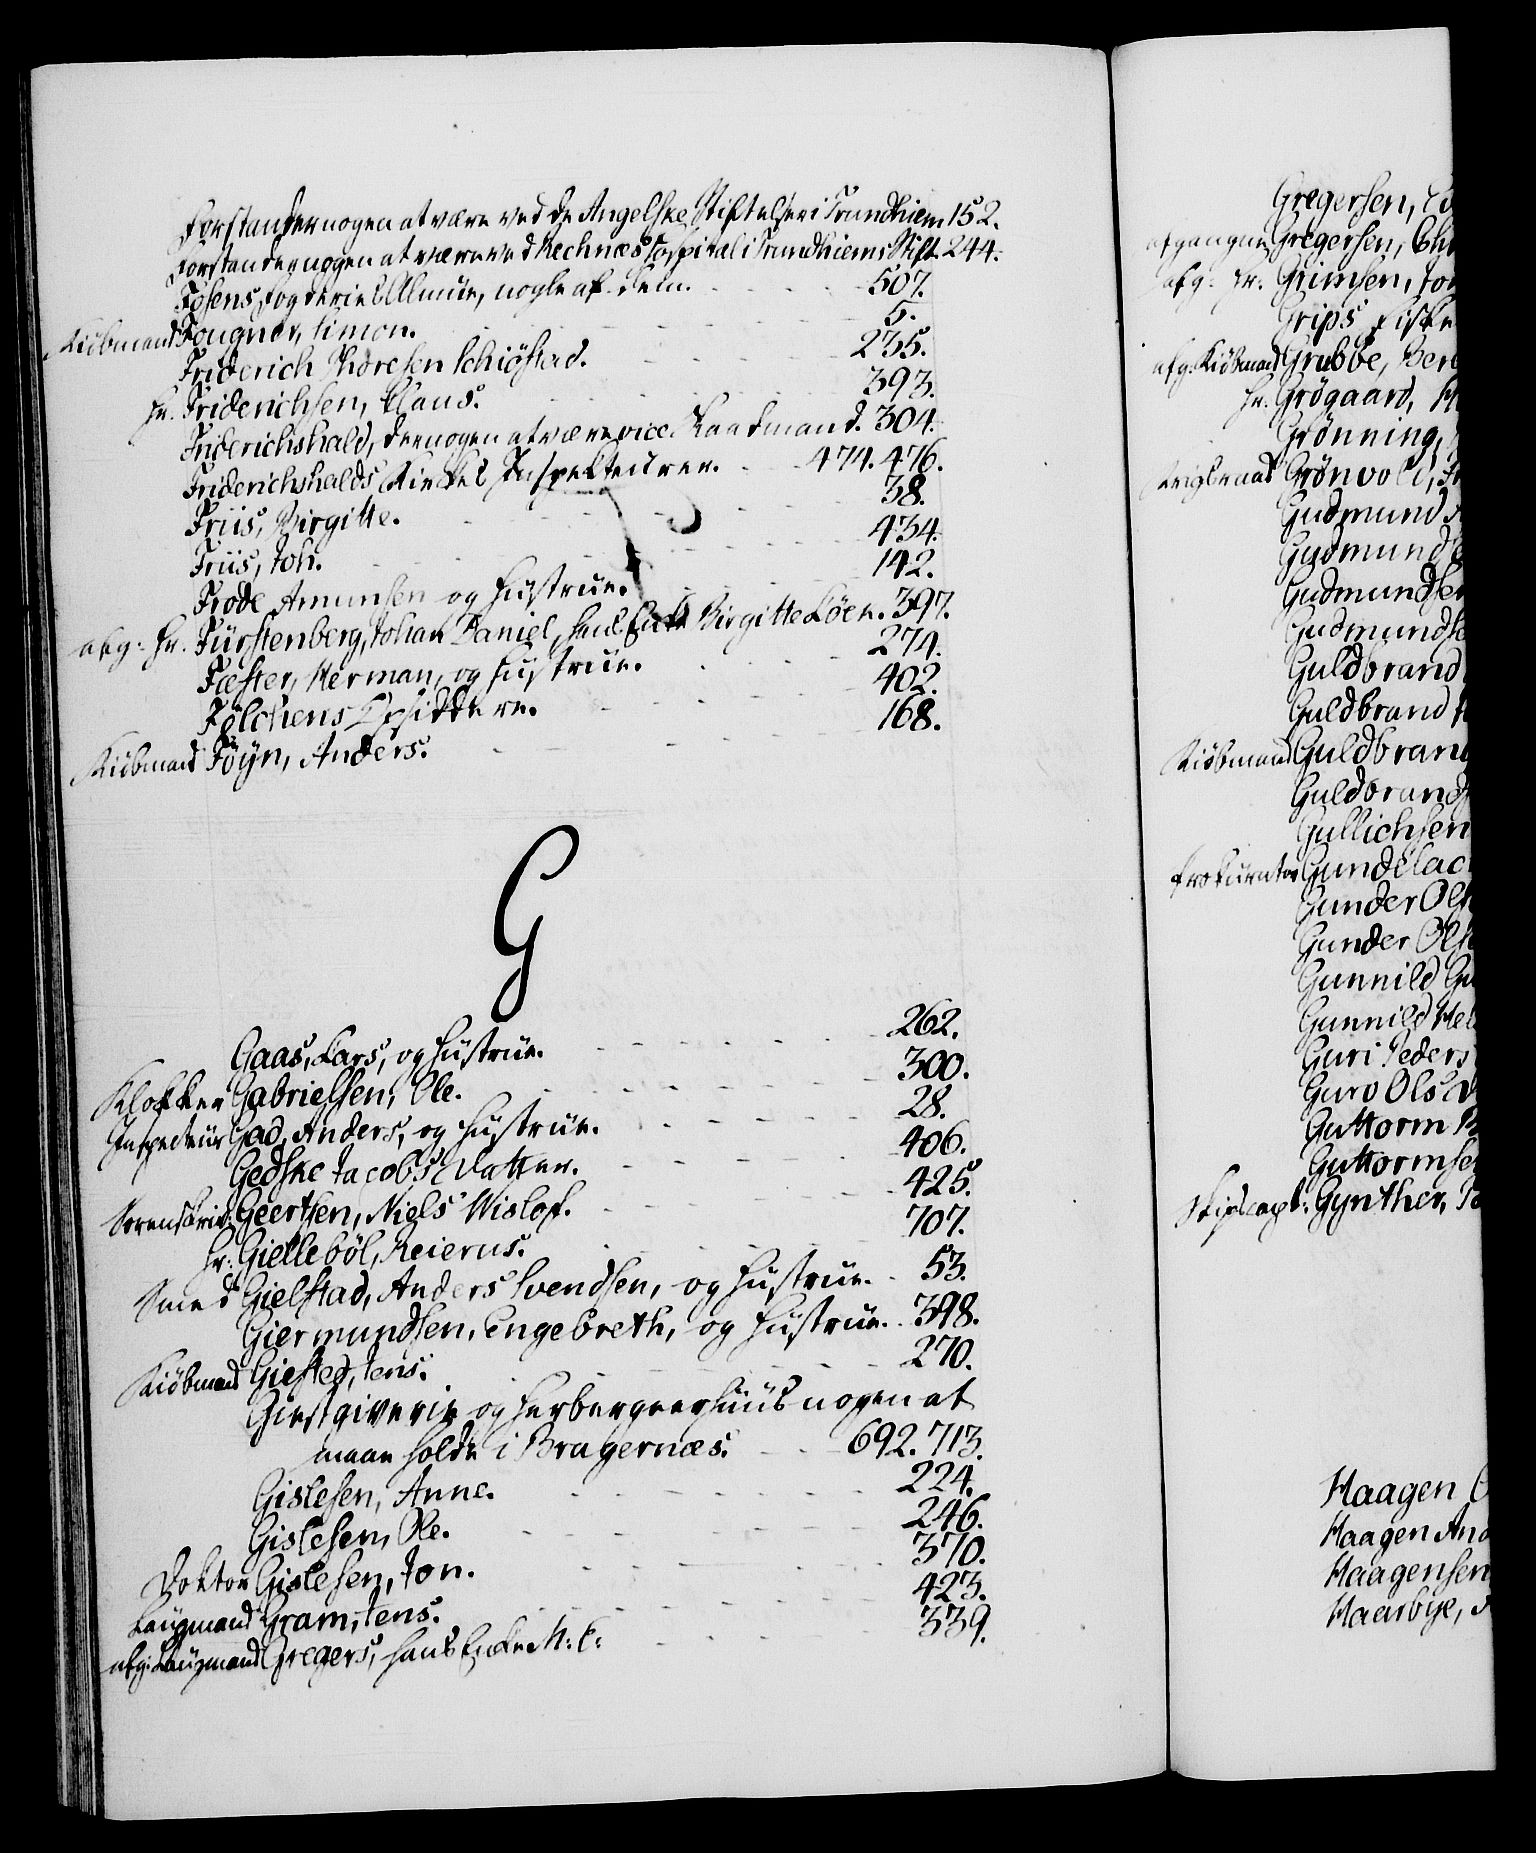 Forstander nogen at være ved de Angelske Stiftelser i Trundhiem 152.
Forstander nogen at være ved Rechnæs Hospital i Trundhiems Stift 244.
Fosens Fogderies Almue, nogle af dem. 507.
Kiøbmand Fougner, Simon. 5.
Friderich Thoresen Schiöstad. 235.
Hr. Friderichsen, Claus. 393.
Friderichshald, der nogen at være vice Raadmand. 304.
Friderichshalds Kirkes Inspekteurer. 474. 476.
Friis, Birgitte. 38.
Friis, Joh. 434.
Frode Amunsen og Hustrue. 142.
afg: Hr. Fürstenberg, Johan Daniel, hans Enke Birgitte Löen. 397.
Fæster, Herman, og Hustrue. 274.
Fölchens Opsiddere. 402.
Kiöbmand Föyn, Anders. 168.
G
Gaas, Lars, og Hustrue. 262.
Klokker Gabrielsen, Ole. 300.
Inspecteur Gad, Anders, og Hustrue. 28.
Gedske Jacobs Datter. 406.
Sorenskriv: Geertsen, Niels Wislof. 425.
Hr: Gielleböl, Reierus. 707.
Smed Gielstad, Anders Svendsen, og Hustrue. 53.
Giermundsen, Engebreth, og Hustrue. 398.
Kiöbmand Giested, Jens. 270.
Giestgiverie og Herbergeerhuus nogen at
maae holde i Bragernæs. 692. 713.
Gislesen, Anne. 224.
Gislesen, Ole. 246.
Doktor Gislesen, Jon. 370.
Laugmand Gram, Jens. 423.
afg: Laugmand Gregers, hans Enke M: C: 339.
Gregersen,
afgangne Gregersen, Chr
afg: Hr. Grimsen, Jo
Grips Fiske
afg: Kiöbmand Grubbe, Ber
Hr. Grögaard, H
Grønning,
Krigsraad Grönvold,
Gudmund
Gudmund
Gudmundsen
Gudmundse
Guldbrand
Guldbrand
Kiöbmand Guldbrand
Guldbrands
Gullichsen
Prokurator Gundelac
Gunder Ols
Gunder Ols
Gunnild Gu
Gunnild Hel
Guri Peders
Guro Ols D
Guttorm
Guttormse
Skibscapt: Gynther,
Haagen
Haagen And
Haagensen
Haarbye,